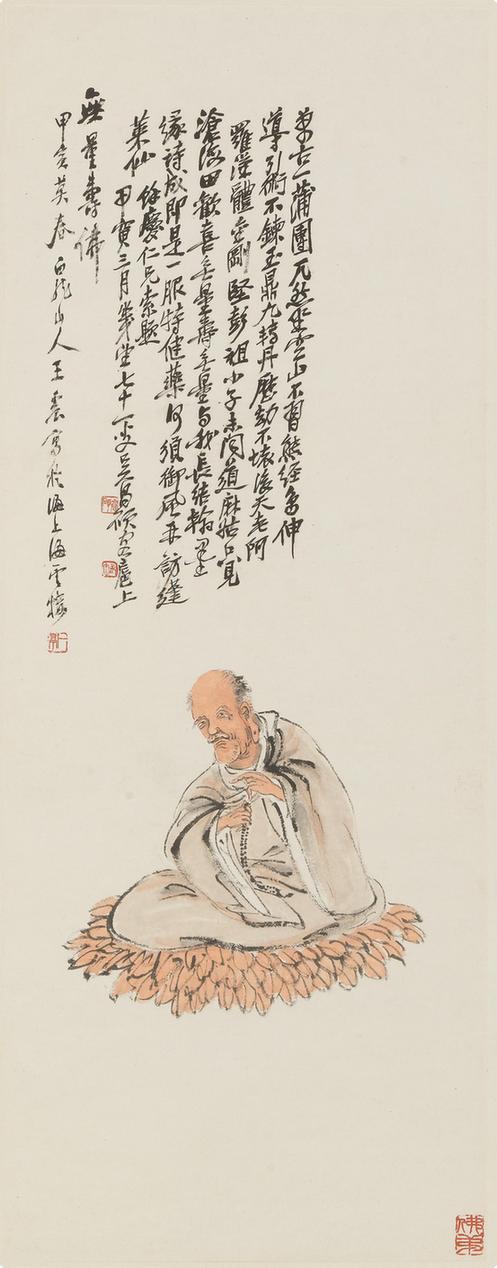 古一蒲團兀然坐空山不習熊經鳥伸
導引術不鍊玉鼎九轉丹歷劫不壞後天老阿
羅漢體金剛堅彭祖小子未聞道麻姑只見
滄海田歡喜無量壽無量與我長結翰墨
緣詩成即是一服特健藥何須御風再訪蓬
萊仙 餘慶仁兄索題
甲寅三月年七十一叟吳昌碩客扈上
無量壽佛
甲寅莫春白龍山人王震寫於海上海雲樓